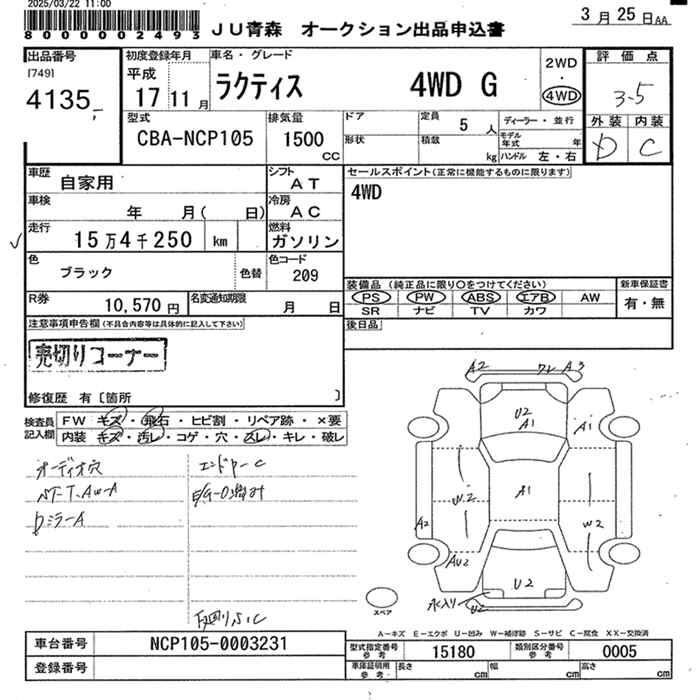 2025/03/22 11:00
80000002493
JU青森 オークション出品申込書
3月25日AA
出品番号
[749]
4135
初度登録年月
平成
17 11月
車名・グレード
ラクティス 4WD G
2WD
・
4WD
評価点
3.5
外装 内装
D C
型式
CBA-NCP105
排気量
1500
CC
ドア
形状
定員
5人
積載
kg
ディーラー・並行
モデル年式 年
ハンドル 左・右
車歴
自家用
シフト
AT
セールスポイント(正常に機能するものに限ります)
4WD
車検
年 月( 日)
冷房
AC
走行
15万4千250 km
燃料
ガソリン
色
ブラック
色替
色コード
209
装備品 (純正品に限り○をつけてください)
PS PW ABS エアB AW
SR ナビ TV カワ
新車保証書
有・無
R券
10,570円
名変通知期限
月 日
後日品
注意事項申告欄(不具合内容等は具体的に記入して下さい)
売切りコーナー
修復歴 有〔箇所 〕
検査員
記入欄
FW キズ・飛石・ヒビ割・リペア跡・×要
内装 キズ・汚レ・コゲ・穴・スレ・キレ・破レ
オーディオ穴
NT-T.AW-A
Dミラ-A
A2 ワレ A3
U2
A1
A1
A1
W2
W2
A2
AU2
U2
水入り
U2
スペア
A-キズ E-エクボ U-凹み W-補修跡 S-サビ C-腐食 XX-交換済
車台番号
NCP105-0003231
登録番号
型式指定番号
参考
15180
類別区分番号
参考
0005
車庫証明用
参考
長さ cm
幅 cm
高さ cm